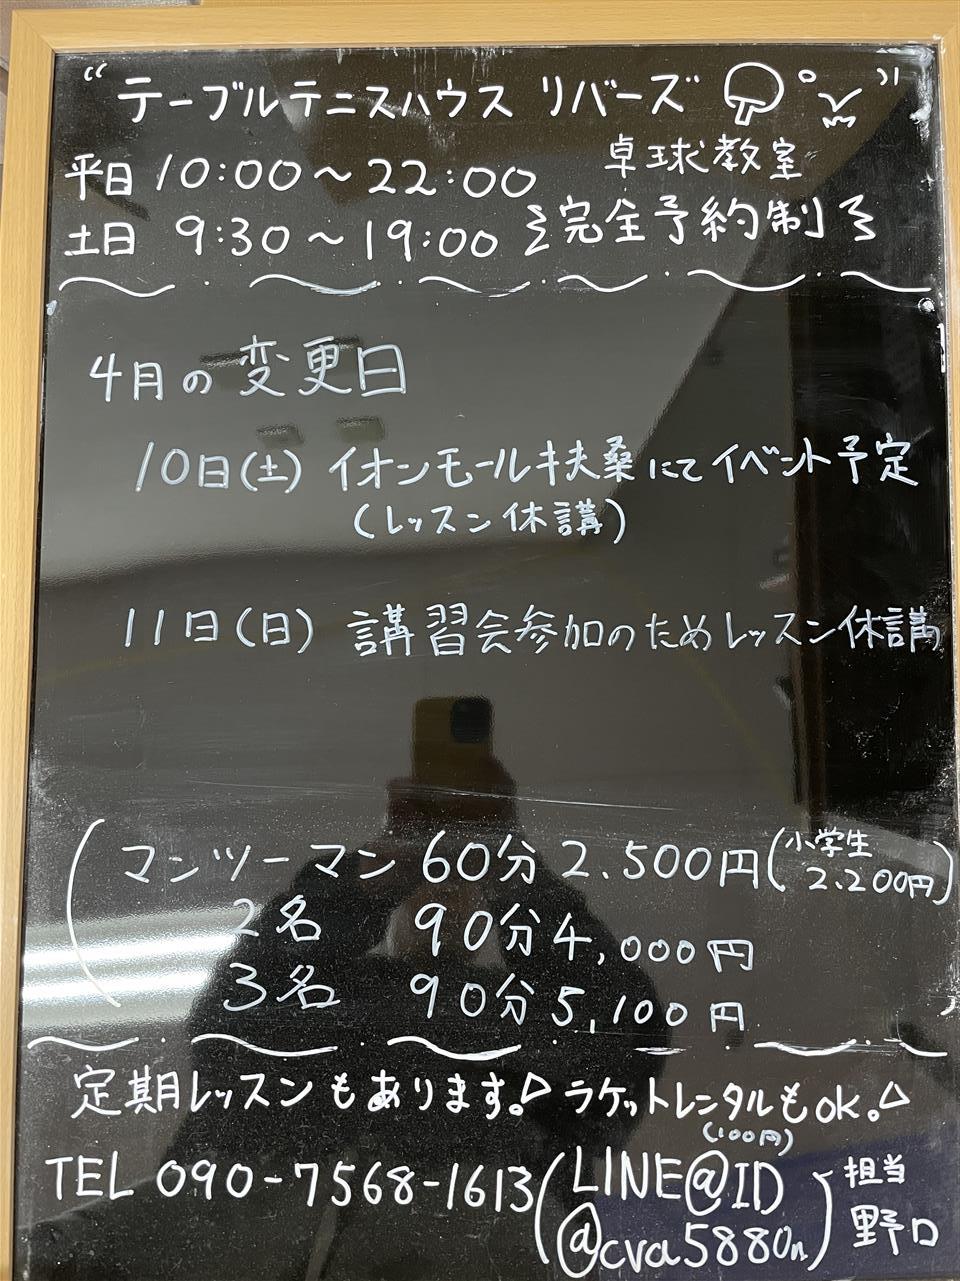 “テーブルテニスハウス リバーズ”
卓球教室
平日 10:00〜22:00
土日 9:30〜19:00 完全予約制
4月の変更日
10日(土) イオンモール扶桑にてイベント予定
(レッスン休講)
11日(日) 講習会参加のためレッスン休講
(マンツーマン 60分 2.500円(小学生 2.200円)
2名 90分 4,000円
3名 90分 5,100円)
定期レッスンもあります。ラケットレンタルもOK。
(100円)
TEL 090-7568-1613 (LINE@ID
@cva5880n) 担当
野口